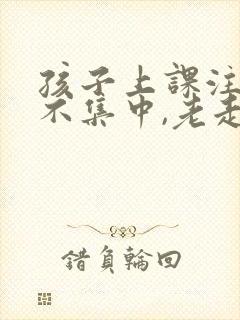 孩子上課注
不集中,老走
錯負輪回